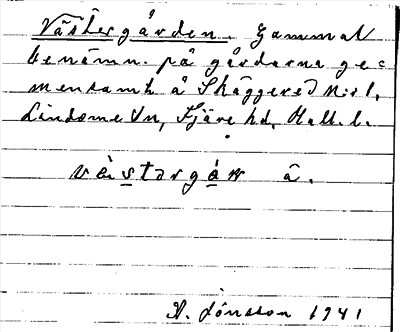 Västergården. Gammal
benämn. på gårdarna ge=
mensamt å Skäggered N:o 1,
Lindome Sn, Fjäre hd, Hall. l.
västərgá̱ṛ â.
A. Jönsson 1941